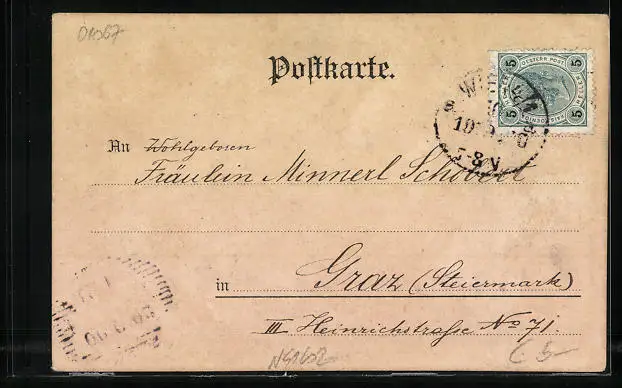 01567
Postkarte.
5 OESTERR. POST 5
HELLER
5 5
WIEN
10
5-8N
An Wohlgeboren
Fräulein Minnerl Schobert
in Graz (Steiermark)
III Heinrichstraße No 71.